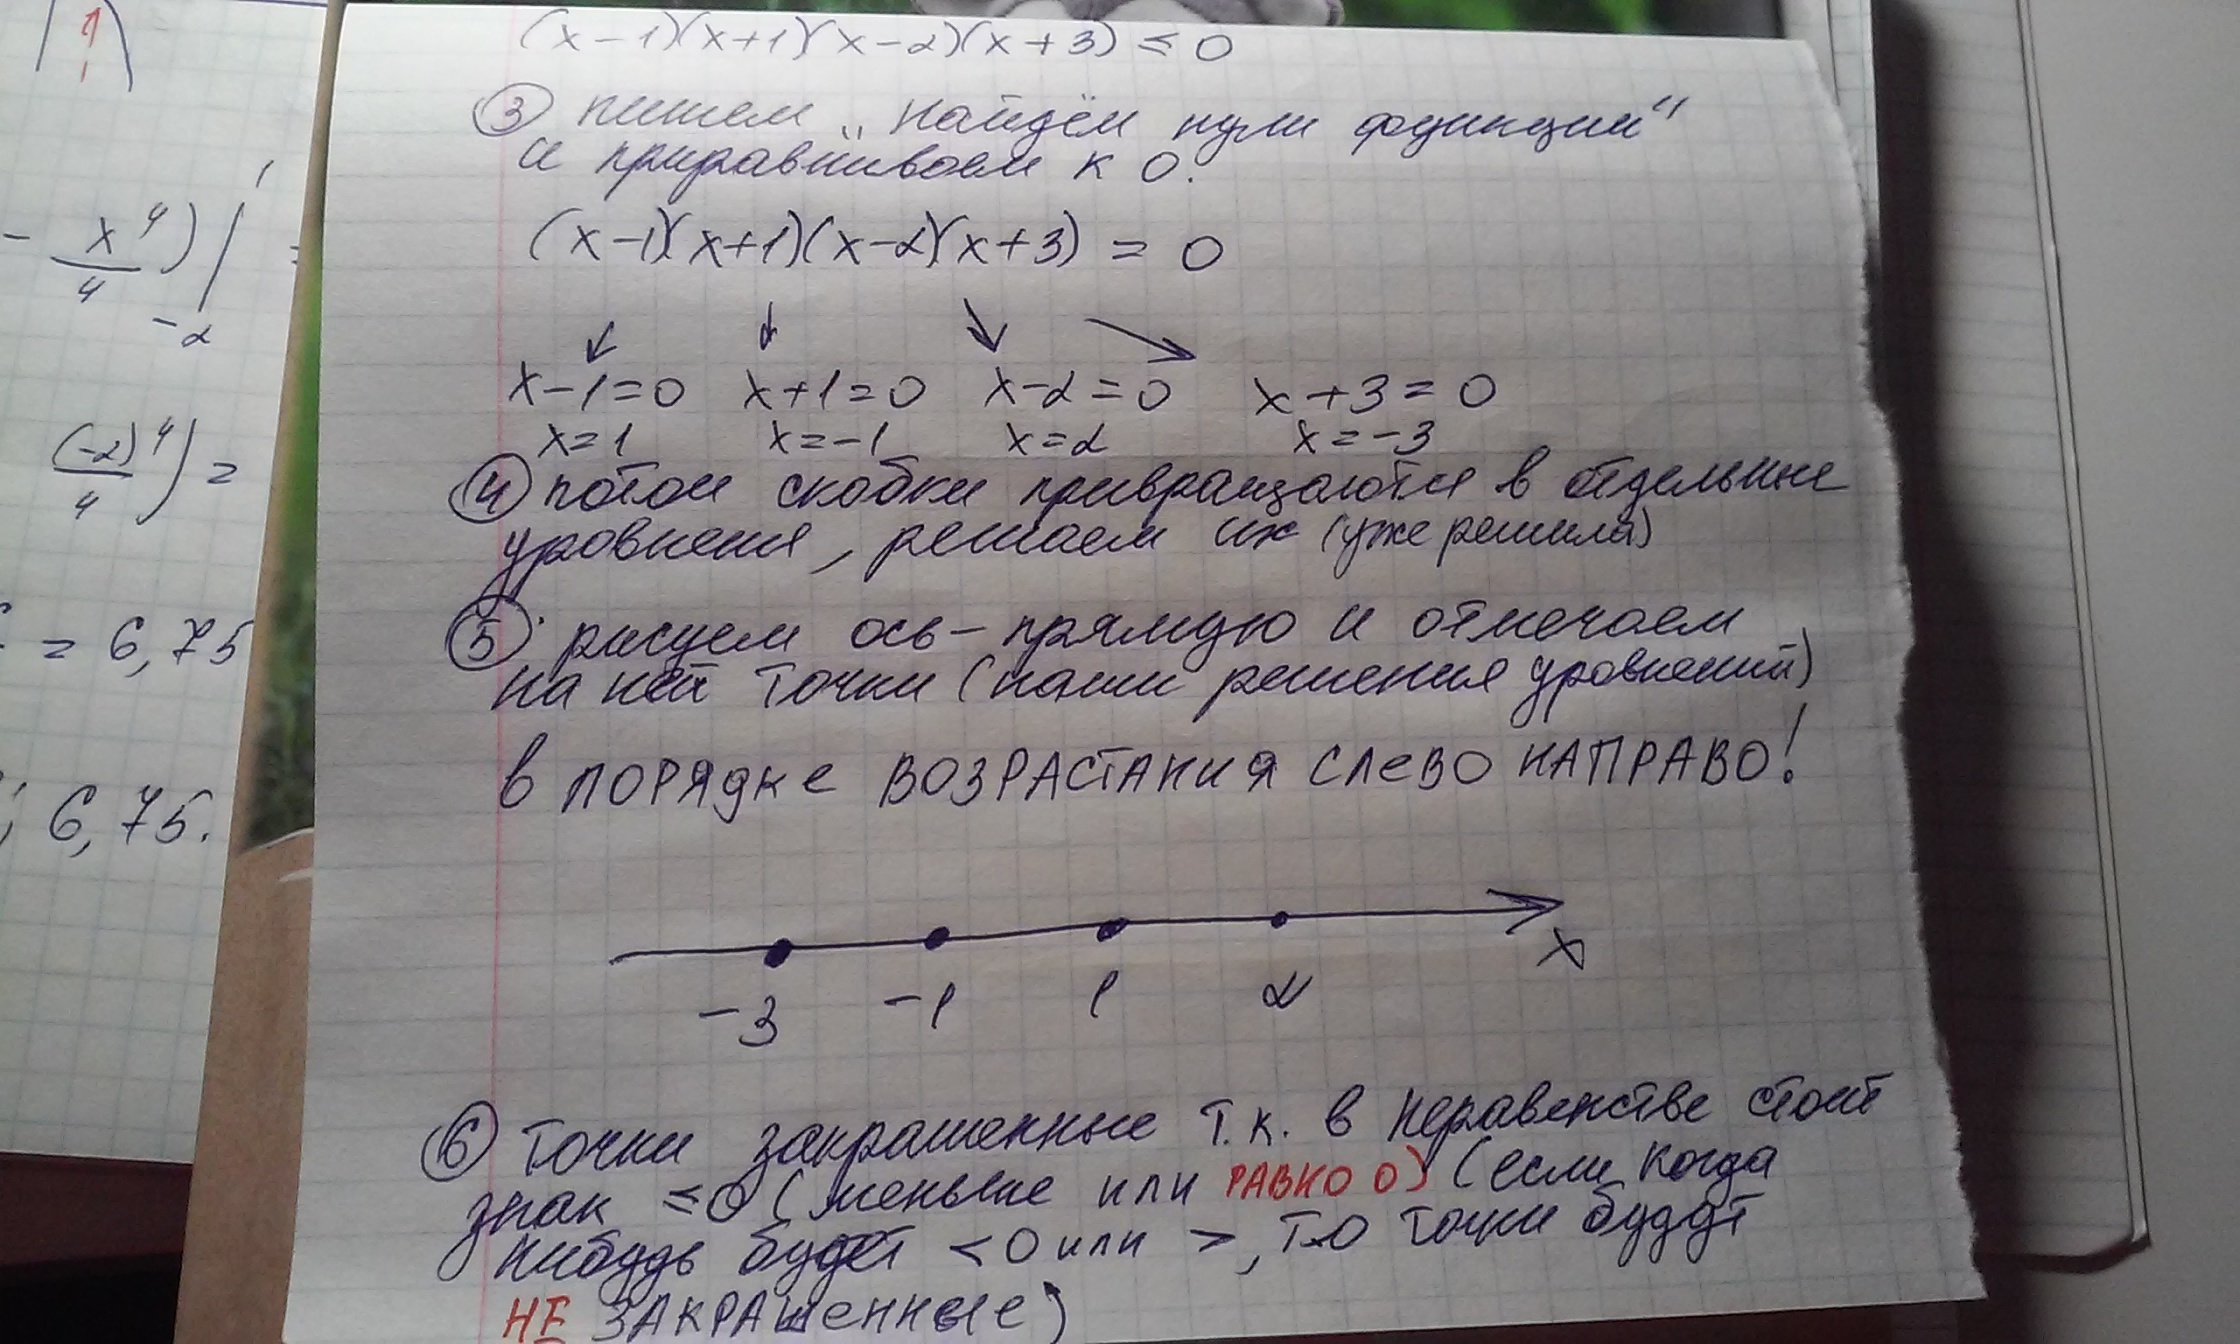 (x-1)(x+1)(x-2)(x+3) ≤ 0
③ пишем „найдём нули функции"
и приравниваем к 0.
(x-1)(x+1)(x-2)(x+3) = 0
x-1=0 x+1=0 x-2=0 x+3=0
x=1 x=-1 x=2 x=-3
④ потом скобки превращаются в отдельные
уровнения, решаем их (уже решила)
⑤ рисуем ось-прямую и отмечаем
на ней точки (наши решения уровнений)
в ПОРЯДКЕ ВОЗРАСТАНИЯ СЛЕВО НАПРАВО!
-3 -1 1 2 x
⑥ точки закрашенные т.к. в неравенстве стоит
знак ≤0 (меньше или РАВНО 0) (если когда
нибудь будет <0 или >, то точки будут
НЕ ЗАКРАШенные)
- x⁴/4 ) | 1
-2
(-2)⁴/4 ) =
= 6,75
; 6,75.